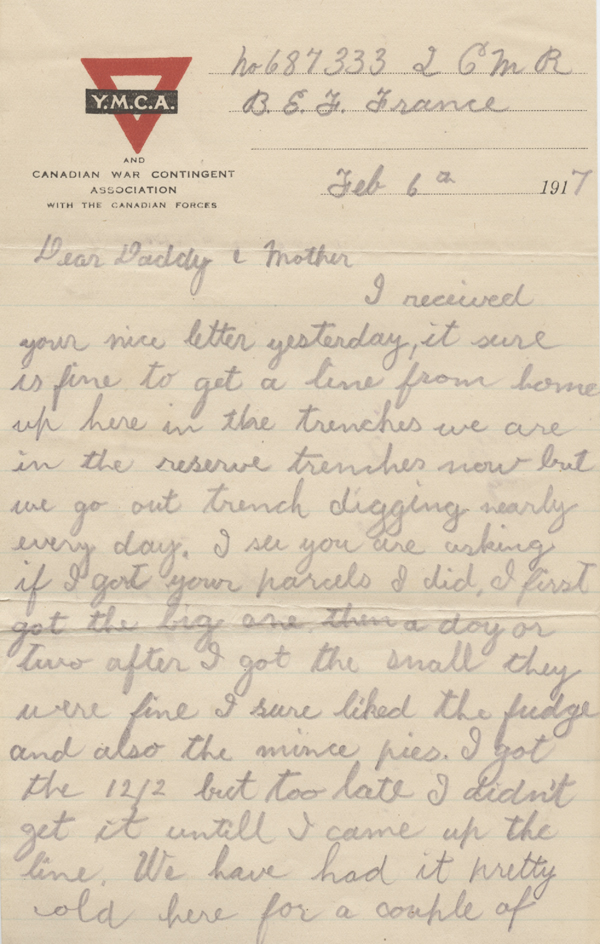 No 687333 2 C M R
B. E. F. France
Y.M.C.A.
AND
CANADIAN WAR CONTINGENT
ASSOCIATION
WITH THE CANADIAN FORCES
Feb 6th 1917
Dear Daddy & Mother
I received
your nice letter yesterday, it sure
is fine to get a line from home
up here in the trenches we are
in the reserve trenches now but
we go out trench digging nearly
every day. I see you are asking
if I got your parcels I did, I first
got the big one, then a day or
two after I got the small they
were fine I sure liked the fudge
and also the mince pies. I got
the 12/2 but too late I didn't
get it untill I came up the
line. We have had it pretty
cold here for a couple of